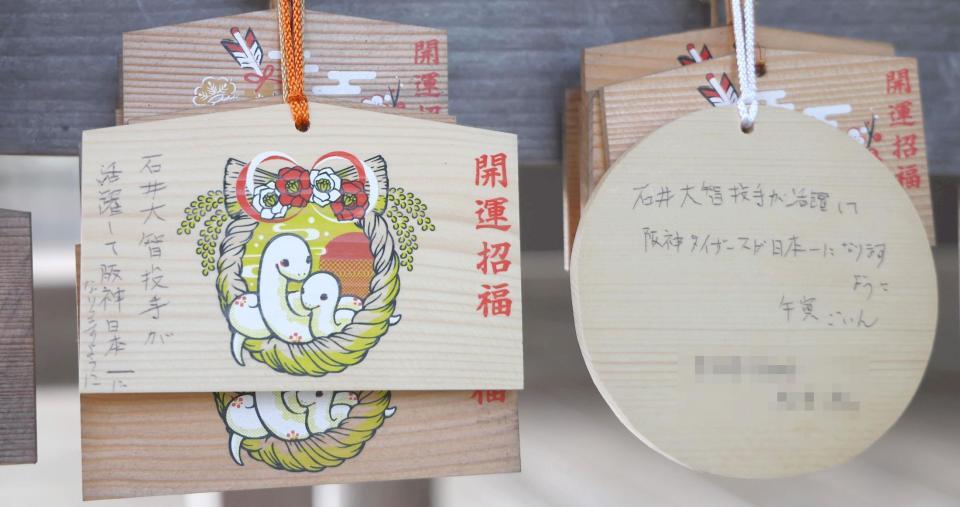 開運招福
石井大智投手が
活躍して阪神日本一に
なりますように
開運招
福
開運招福
石井大智投手が活躍して
阪神タイガースが日本一になります
ように
午寅